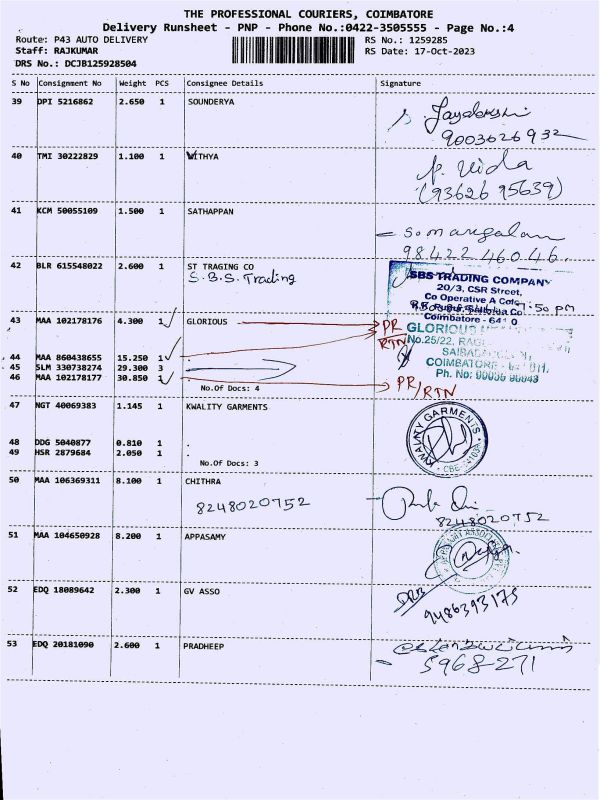 THE PROFESSIONAL COURIERS, COIMBATORE
Delivery Runsheet - PNP - Phone No.:0422-3505555 - Page No.:4
Route: P43 AUTO DELIVERY RS No.: 1259285
Staff: RAJKUMAR RS Date: 17-Oct-2023
DRS No.: DCJB125928504
S No Consignment No Weight PCS Consignee Details Signature
39 DPI 5216862 2.650 1 SOUNDERYA
9003626932
40 TMI 30222829 1.100 1 VITHYA
(93626 95639)
41 KCM 50055109 1.500 1 SATHAPPAN
98422 46046.
42 BLR 615548022 2.600 1 ST TRAGING CO
S.B.S. Trading
SBS TRADING COMPANY
20/3, CSR Street,
Co Operative A Colo
7:50 pm
Coimbatore - 641 0
43 MAA 102178176 4.300 1 GLORIOUS PR
RTN
GLORIOUS
No.25/22,
SAIBA
COIMBATORE
Ph. No:
44 MAA 860438655 15.250 1 .
45 SLM 330738274 29.300 3
46 MAA 102178177 30.850 1 PR/RTN
No.Of Docs: 4
47 NGT 40069383 1.145 1 KWALITY GARMENTS
KWALITY GARMENTS
48 DDG 5040877 0.810 1 .
49 HSR 2879684 2.050 1 .
No.Of Docs: 3
50 MAA 106369311 8.100 1 CHITHRA
8248020752
8248020752
51 MAA 104650928 8.200 1 APPASAMY
52 EDQ 18089642 2.300 1 GV ASSO
9486393175
53 EDQ 20181090 2.600 1 PRADHEEP
5968-271